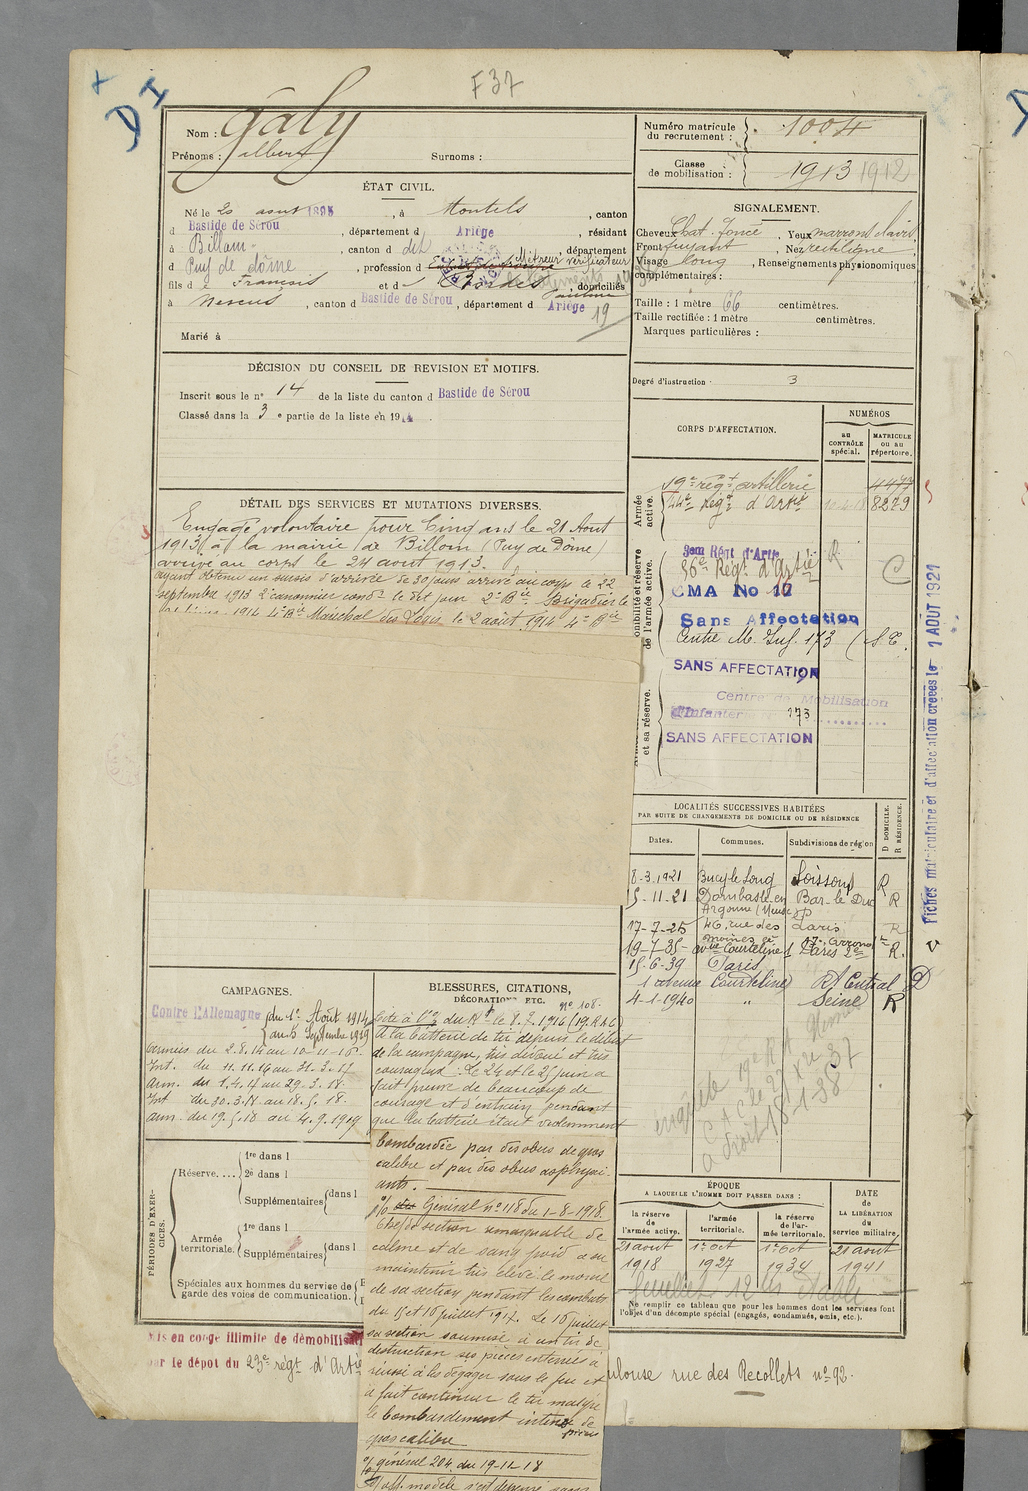 F 37
D I
Nom : Galy
Prénoms : Albert Surnoms :
Numéro matricule du recrutement : 1004
Classe de mobilisation : 1913 1912
ÉTAT CIVIL.
Né le 20 août 1893, à Montels, canton
d Bastide de Sérou, département d Ariège, résidant
à Billom, canton d dit, département
d Puy de dôme, profession d Métreur vérificateur
fils d e François et d e Bordes Pauline, domiciliés
à Nescus, canton d Bastide de Sérou, département d Ariège
19
Marié à
SIGNALEMENT.
Cheveux Chat. foncé, Yeux marrons clairs
Front fuyant, Nez rectiligne
Visage long, Renseignements physionomiques
complémentaires :
Taille : 1 mètre 66 centimètres.
Taille rectifiée : 1 mètre centimètres.
Marques particulières :
Degré d'instruction : 3
DÉCISION DU CONSEIL DE REVISION ET MOTIFS.
Inscrit sous le n° 14 de la liste du canton d Bastide de Sérou
Classé dans la 3 e partie de la liste en 191
CORPS D'AFFECTATION.
NUMÉROS
au CONTRÔLE spécial.
MATRICULE ou au répertoire.
Armée active.
19e régt artillerie
24e Régt d'Artie 8279
DÉTAIL DES SERVICES ET MUTATIONS DIVERSES.
Engagé volontaire pour Cinq ans le 21 Août
1913 à la mairie de Billom (Puy de Dôme)
arrivé au corps le 24 août 1913.
ayant obtenu un sursis d'arrivée de 30 jours arrivé au corps le 22
septembre 1913 2e canonnier condr le dit jour 2e Bie Brigadier le
1914 4e Bie Maréchal des Logis le 2 août 1914 4e Bie
Régt d'Artie
36e Régt d'Artie R
CMA No 17
Sans Affectation
Centre M. Inf. 173
SANS AFFECTATION
Centre de Mobilisation
d'Infanterie 173
SANS AFFECTATION
et sa réserve.
Fiches matriculaire et d'affectation créées le 1 AOUT 1921
LOCALITÉS SUCCESSIVES HABITÉES
PAR SUITE DE CHANGEMENTS DE DOMICILE OU DE RÉSIDENCE
Dates. Communes. Subdivisions de région D DOMICILE. R RÉSIDENCE.
8-3-1921 Bucy le Long Soissons R
15-11-21 Dombasle en Argonne (Meuse) Bar-le-Duc R
17-7-25 46, rue des moines Paris R
19-7-35 avue Courteline 1 Paris R.
15-6-39 Paris
1 avenue Courteline Rt Central D
4-1-1940 " Seine R
CAMPAGNES.
Contre l'Allemagne du 1er Août 1914
au 5 Septembre 1919
Armées du 2.8.14 au 10-11-16
Int. du 11.11.16 au 31.3.17
Arm. du 1.4.17 au 29.3.18
Int du 30.3.18 au 18.5.18.
Arm. du 19.5.18 au 4.9.1919
BLESSURES, CITATIONS,
DÉCORATIONS ETC.
n° 108.
Cité à l'O. du Rt le 8.7.1916 (19. R.A.C)
A la batterie de tir depuis le début
de la campagne, très dévoué et très
courageux. Le 24 et le 25 juin a
fait preuve de beaucoup de
courage et d'entrain pendant
que la batterie était violemment
bombardée par des obus de gros
calibre et par des obus asphyxi-
ants.
Général n° 118 du 1-8-1918.
Chef de section remarquable de
calme et de sang froid a su
maintenir très élevé le moral
de sa section pendant les combats
du 15 et 16 juillet 1918. Le 16 juillet
sa section soumise à un tir de
destruction ses pièces enterrées a
réussi à les dégager sous le feu et
a fait continuer le tir malgré
le bombardement intense de
gros calibre
général 204 du 19-11-18
PÉRIODES D'EXERCICES.
Réserve.... 1re dans l
2e dans l
Supplémentaires dans l
Armée territoriale. 1re dans l
Supplémentaires dans l
Spéciales aux hommes du service de
garde des voies de communication.
ÉPOQUE
A LAQUELLE L'HOMME DOIT PASSER DANS :
la réserve de l'armée active. l'armée territoriale. la réserve de l'armée territoriale.
DATE DE LA LIBÉRATION du service militaire.
21 août 1918 1er Oct 1927 1er Oct 1934 21 août 1941
Ne remplir ce tableau que pour les hommes dont les services font
l'objet d'un décompte spécial (engagés, condamnés, omis, etc.).
Mis en congé illimité de démobilisation
par le dépot du 23e régt d'Artie
Toulouse rue des Recollets n° 92.